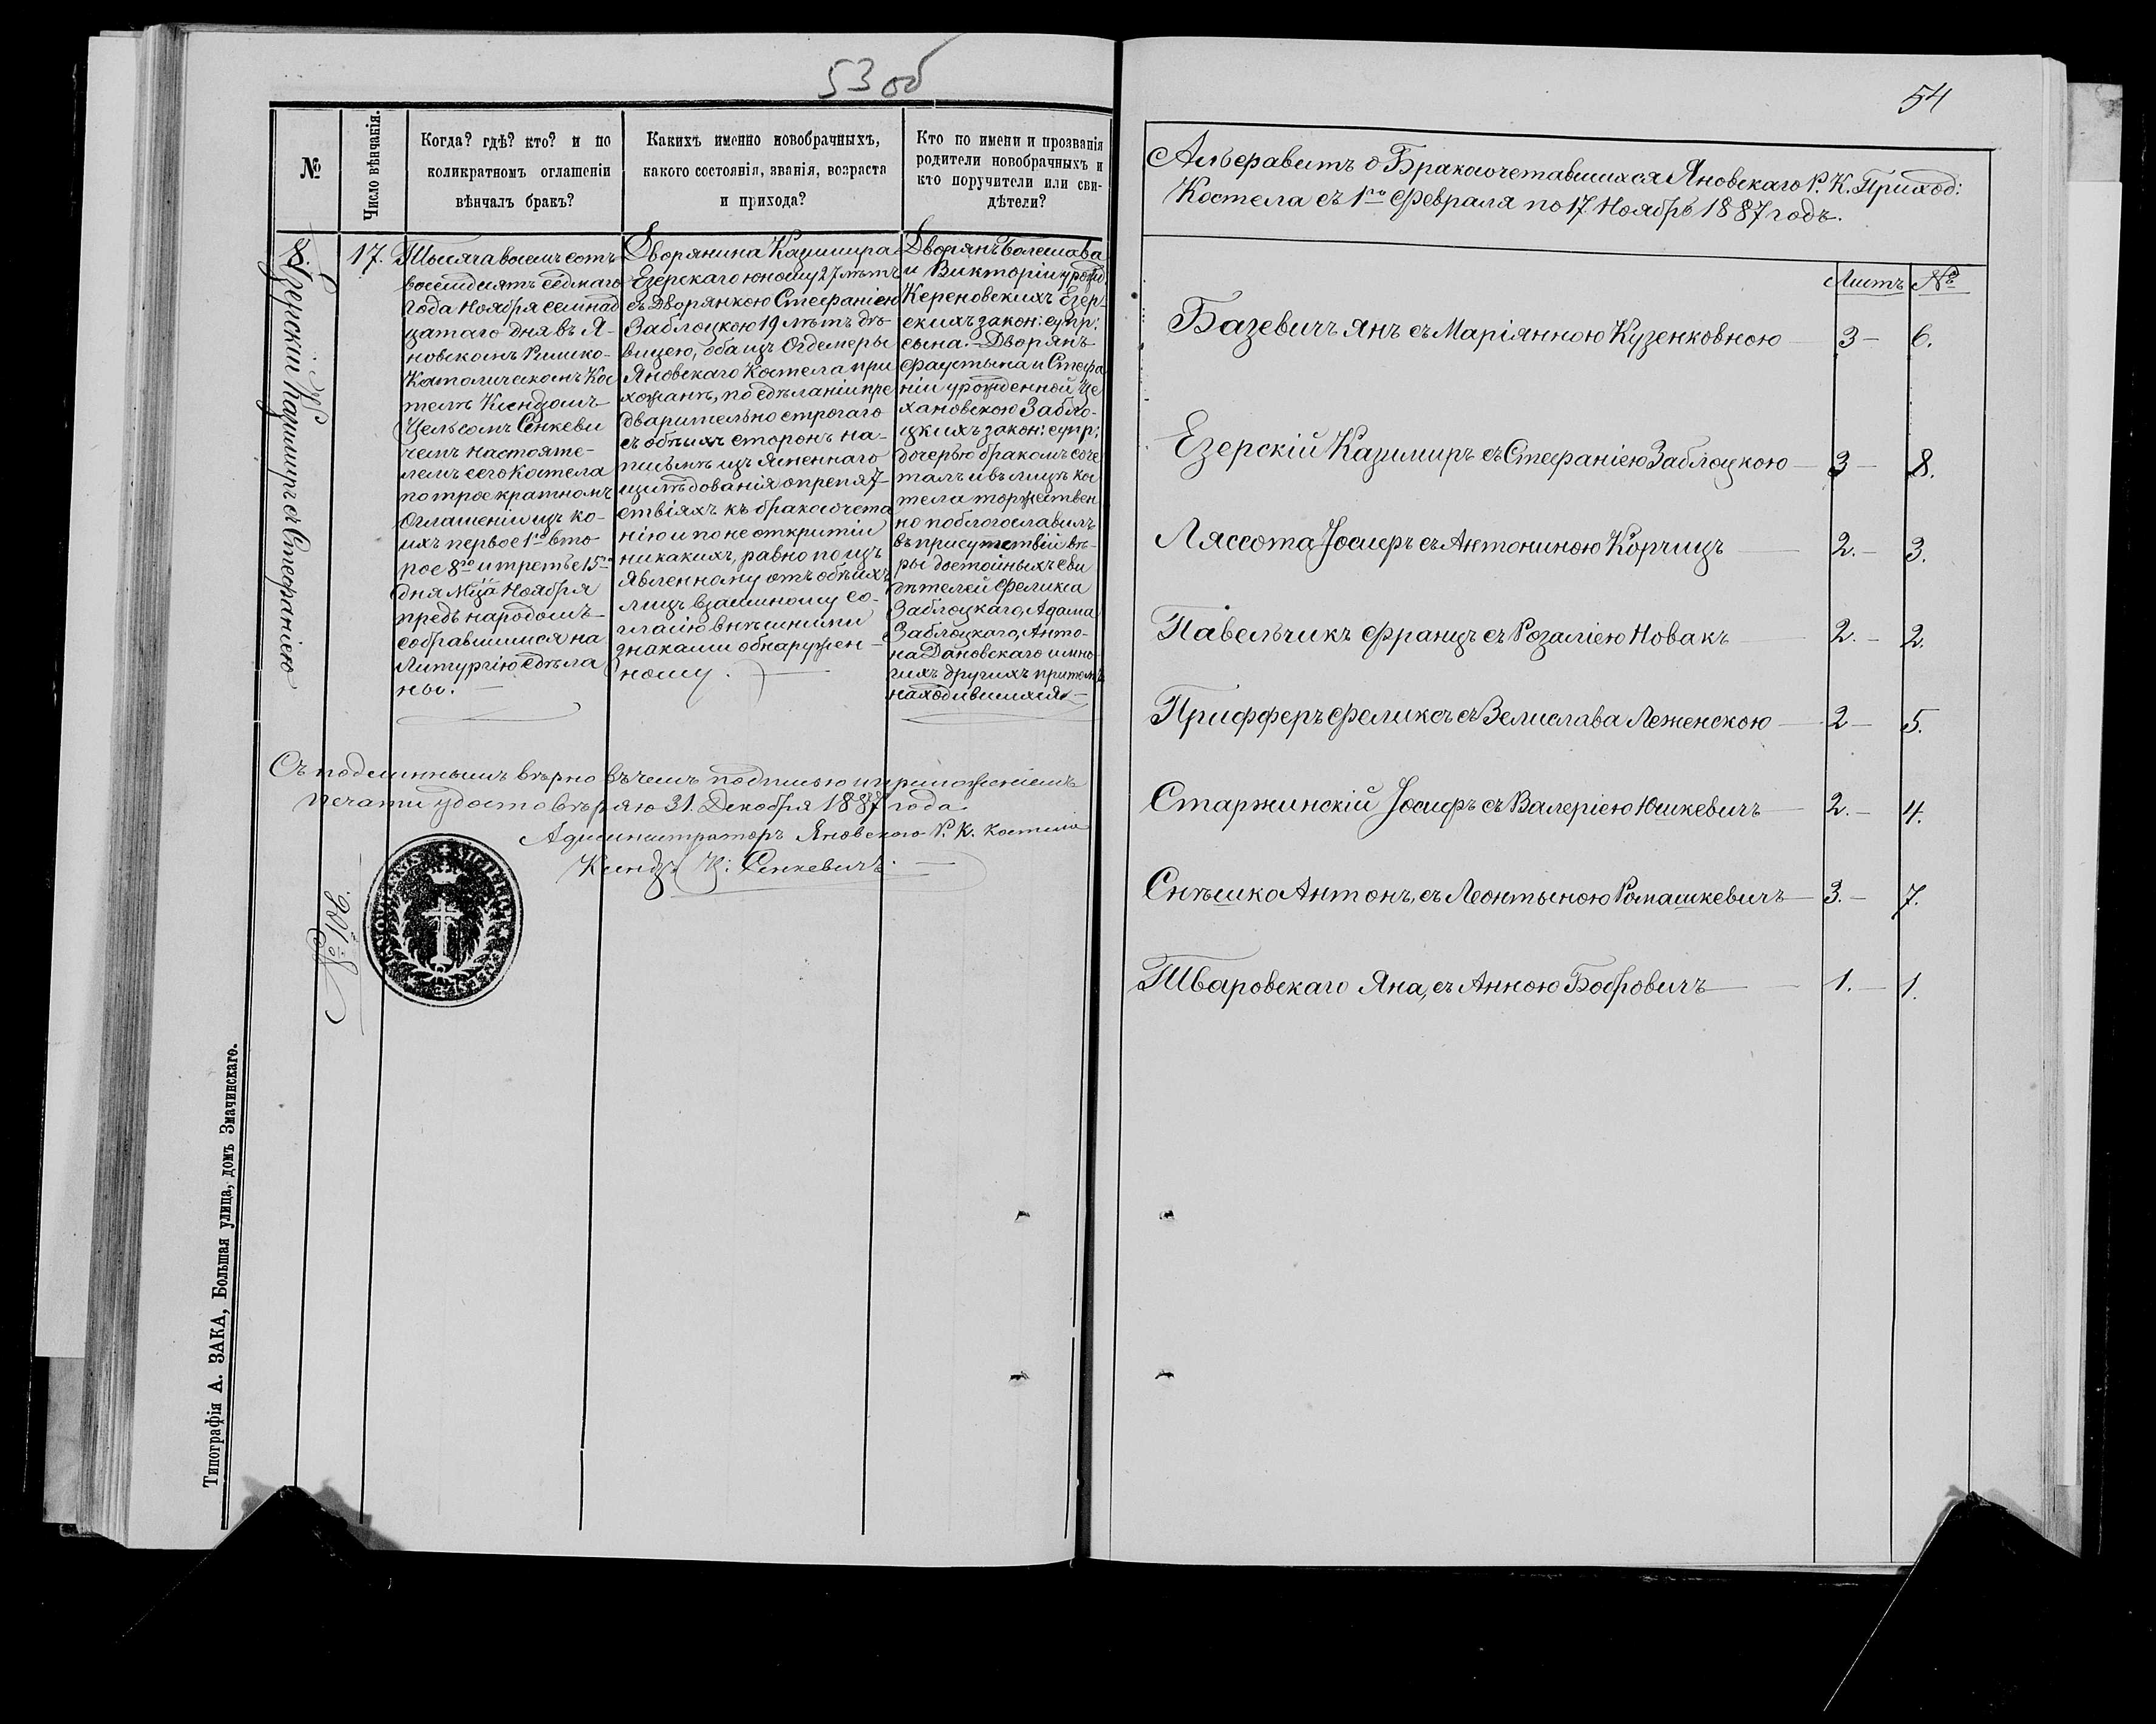 53 об
№
Число вѣнчанія.
Когда? гдѣ? кто? и по
коликратномъ оглашеніи
вѣнчалъ бракъ?
Какихъ именно новобрачныхъ,
какого состоянія, званія, возраста
и прихода?
Кто по имени и прозванія
родители новобрачныхъ и
кто поручители или сви-
дѣтели?
8.
Езерскій Казимиръ съ Стефаніею
17.
Тысяча восемъ сотъ
восемдесятъ седмаго
года Ноября семнад
цатаго дня въ Я-
новскомъ Римско-
Католическомъ Кос
телѣ Ксендзомъ
Цельсомъ Сенкеви
чемъ Настояте-
лемъ сего Костела
по троекратномъ
Оглашеніи изъ ко-
ихъ первое 1го вто-
рое 8го и третье 15го
дня Мца Ноября
предъ народомъ
собравшимся на
Литургію сдѣла
ны.
Дворянина Казимира
Езерскаго юношу 27 лѣтъ
съ Дворянкою Стефаніею
Заблоцкою 19 лѣтъ дѣ-
вицею, оба изъ Огдемеры
Яновскаго Костела при
хожанъ, по сдѣланіи пре
дварительно строгаго
съ обѣихъ сторонъ на-
письмѣ изъясненнаго
изслѣдованія о препят-
ствіяхъ къ бракосочета
нію и по не открытіи
никакихъ, равно по изъ
явленному отъ обѣихъ
лицъ взаимному со-
гласію внѣшними
знаками обнаружен-
ному.
Дворянъ Болеслава
и Викторіи урожд.
Кереновскихъ Езер-
скихъ закон: супр:
сына. - Дворянъ
Фаустына и Стефа
ніи урожденной Це
хановскою Забло-
цкихъ закон: супр:
дочерью бракомъ соче
талъ и въ лицѣ кос
тела торжествен
но поблогославилъ
въ присутствіи вѣ-
ры достойныхъ сви
дѣтелей Феликса
Заблоцкаго, Адама
Заблоцкаго, Анто-
на Дановскаго и мно-
гихъ другихъ притомъ
находившихся.
Съ подлиннымъ вѣрно въ чемъ подписью и приложеніемъ
печати удостовѣряю 31. Декабря 1887 года.
Администраторъ Яновскаго Р. К. костела
Ксендзъ Ц: Сенкевичъ.
№ 106.
Типографія А. ЗАКА, Большая улица, домъ Змачинскаго.
54
Алфавитъ о Бракосочетавшихся Яновскаго Р. К. Приход:
Костела съ 1го Февраля по 17. Ноябрь 1887 годъ.
Листъ №
Базевичъ Янъ съ Маріянною Кузенковною 3 - 6.
Езерскій Казимиръ съ Стефаніею Заблоцкою 3 - 8.
Лассота Іосифъ съ Антониною Корчицъ 2. - 3.
Павельчикъ Францъ съ Розаліею Новакъ 2. - 2.
Прифферъ Феликсъ съ Велислава Леженскою 2 - 5.
Старжинскій Іосифъ съ Валеріею Юшкевичъ 2. - 4.
Снѣшко Антонъ, съ Леонтыною Ромашкевичъ 3. - 7.
Тваровскаго Яна, съ Анною Бобровичъ 1. - 1.